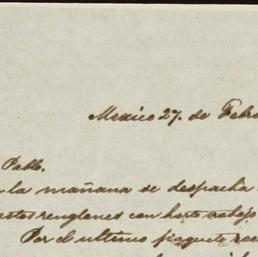 Mexico 27. de Febr
Pablo.
la mañana se despacha
estos renglones con harto trabajo
Por el ultimo paquete rec